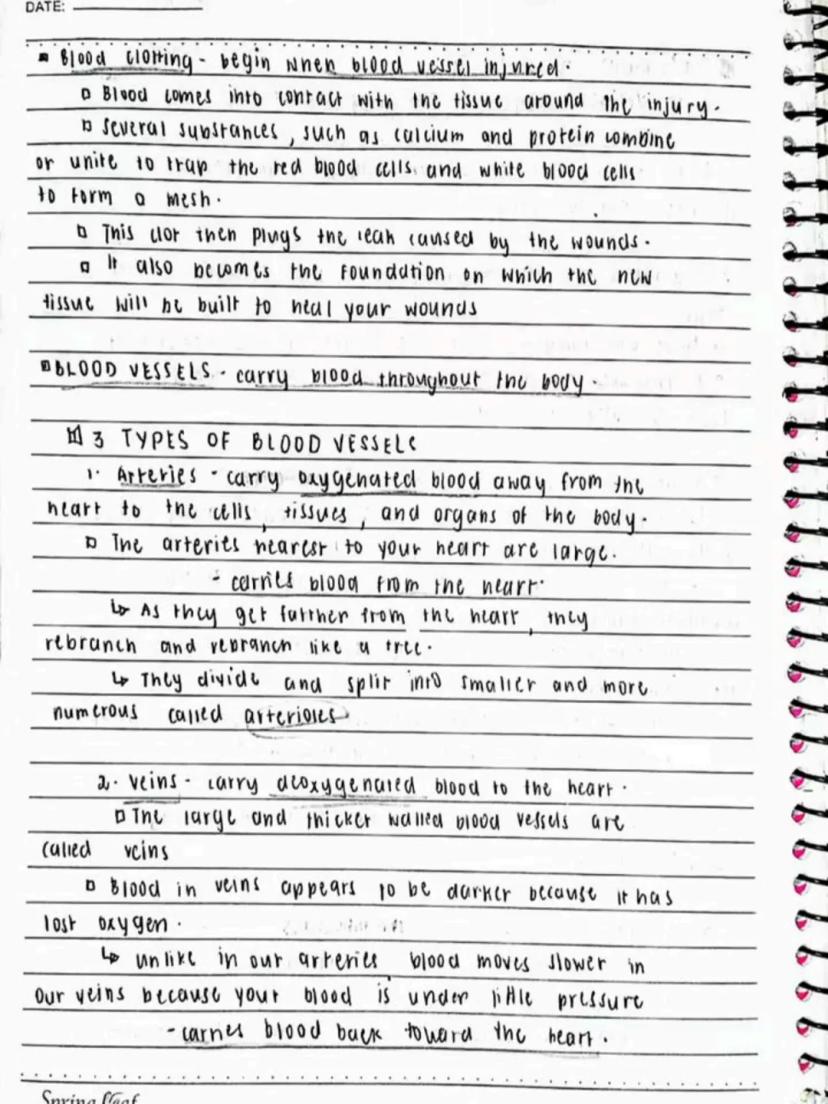 DATE:
Blood clotting - begin when blood vessel injured.
Blood comes into contact with the tissue around the injury.
Several substances, such as calcium and protein combine
or unite to trap the red blood cells and white blood cells
to form a mesh.
This clot then plugs the leak caused by the wounds.
It also becomes the foundation on which the new
tissue will be built to heal your wounds
BLOOD VESSELS - carry blood throughout the body.
3 TYPES OF BLOOD VESSELS
1. Arteries - carry oxygenated blood away from the
heart to the cells, tissues, and organs of the body.
The arteries nearest to your heart are large.
- carries blood from the heart.
↳ As they get further from the heart, they
rebranch and rebranch like a tree.
↳ They divide and split into smaller and more
numerous called arterioles
2. Veins - carry deoxygenated blood to the heart.
The large and thicker walled blood vessels are
called veins
Blood in veins appears to be darker because it has
lost oxygen.
↳ unlike in our arteries blood moves slower in
our veins because your blood is under little pressure
- carries blood back toward the heart.
Spring Leaf